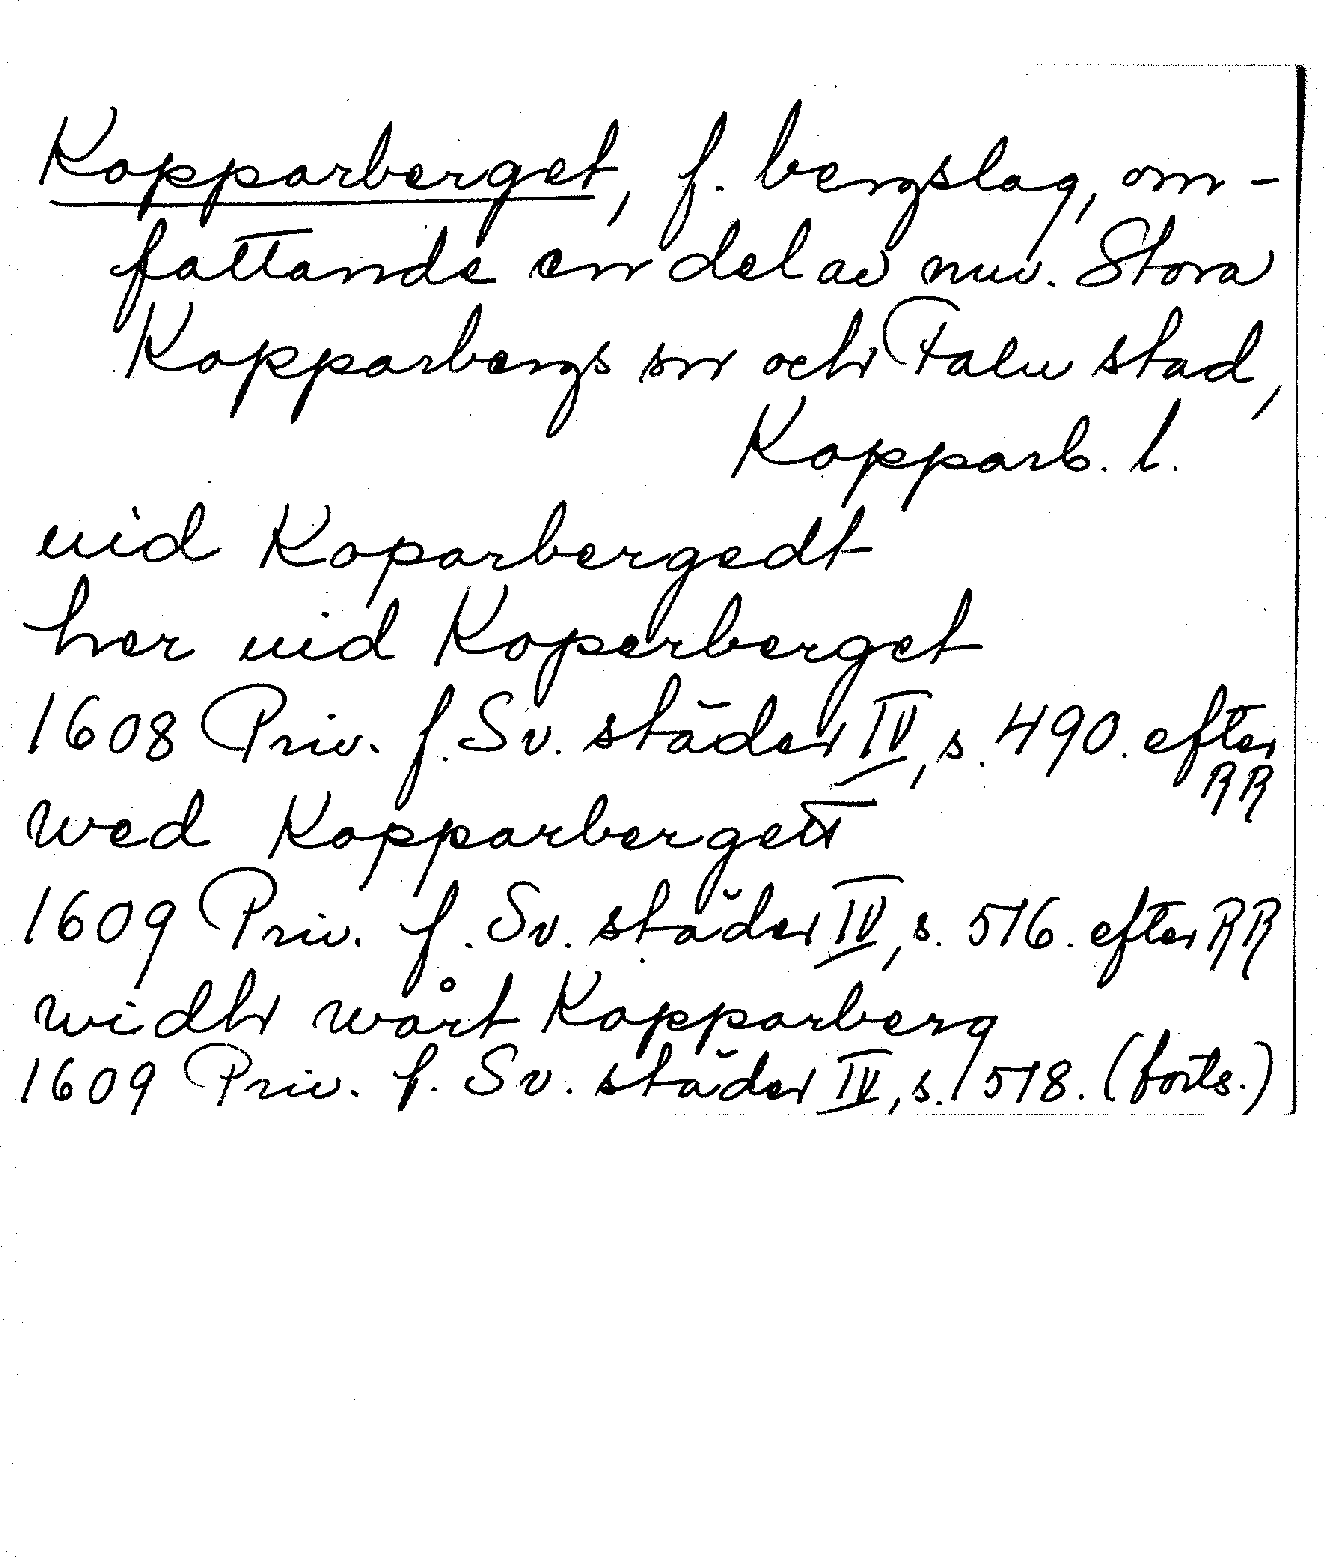 Kopparberget, f. bergslag, om-
fattande en del av nuv. Stora
Kopparbergs sn och Falu stad,
Kopparb. l.
uid Koparbergedt
her uid Koperberget
1608 Priv. f. Sv. städer IV, s. 490. efter
RR
wed Kopparbergett
1609 Priv. f. Sv. städer IV, s. 516. efter RR
widh wårt Kopparberg
1609 Priv. f. Sv. städer IV, s. 518. (forts.)